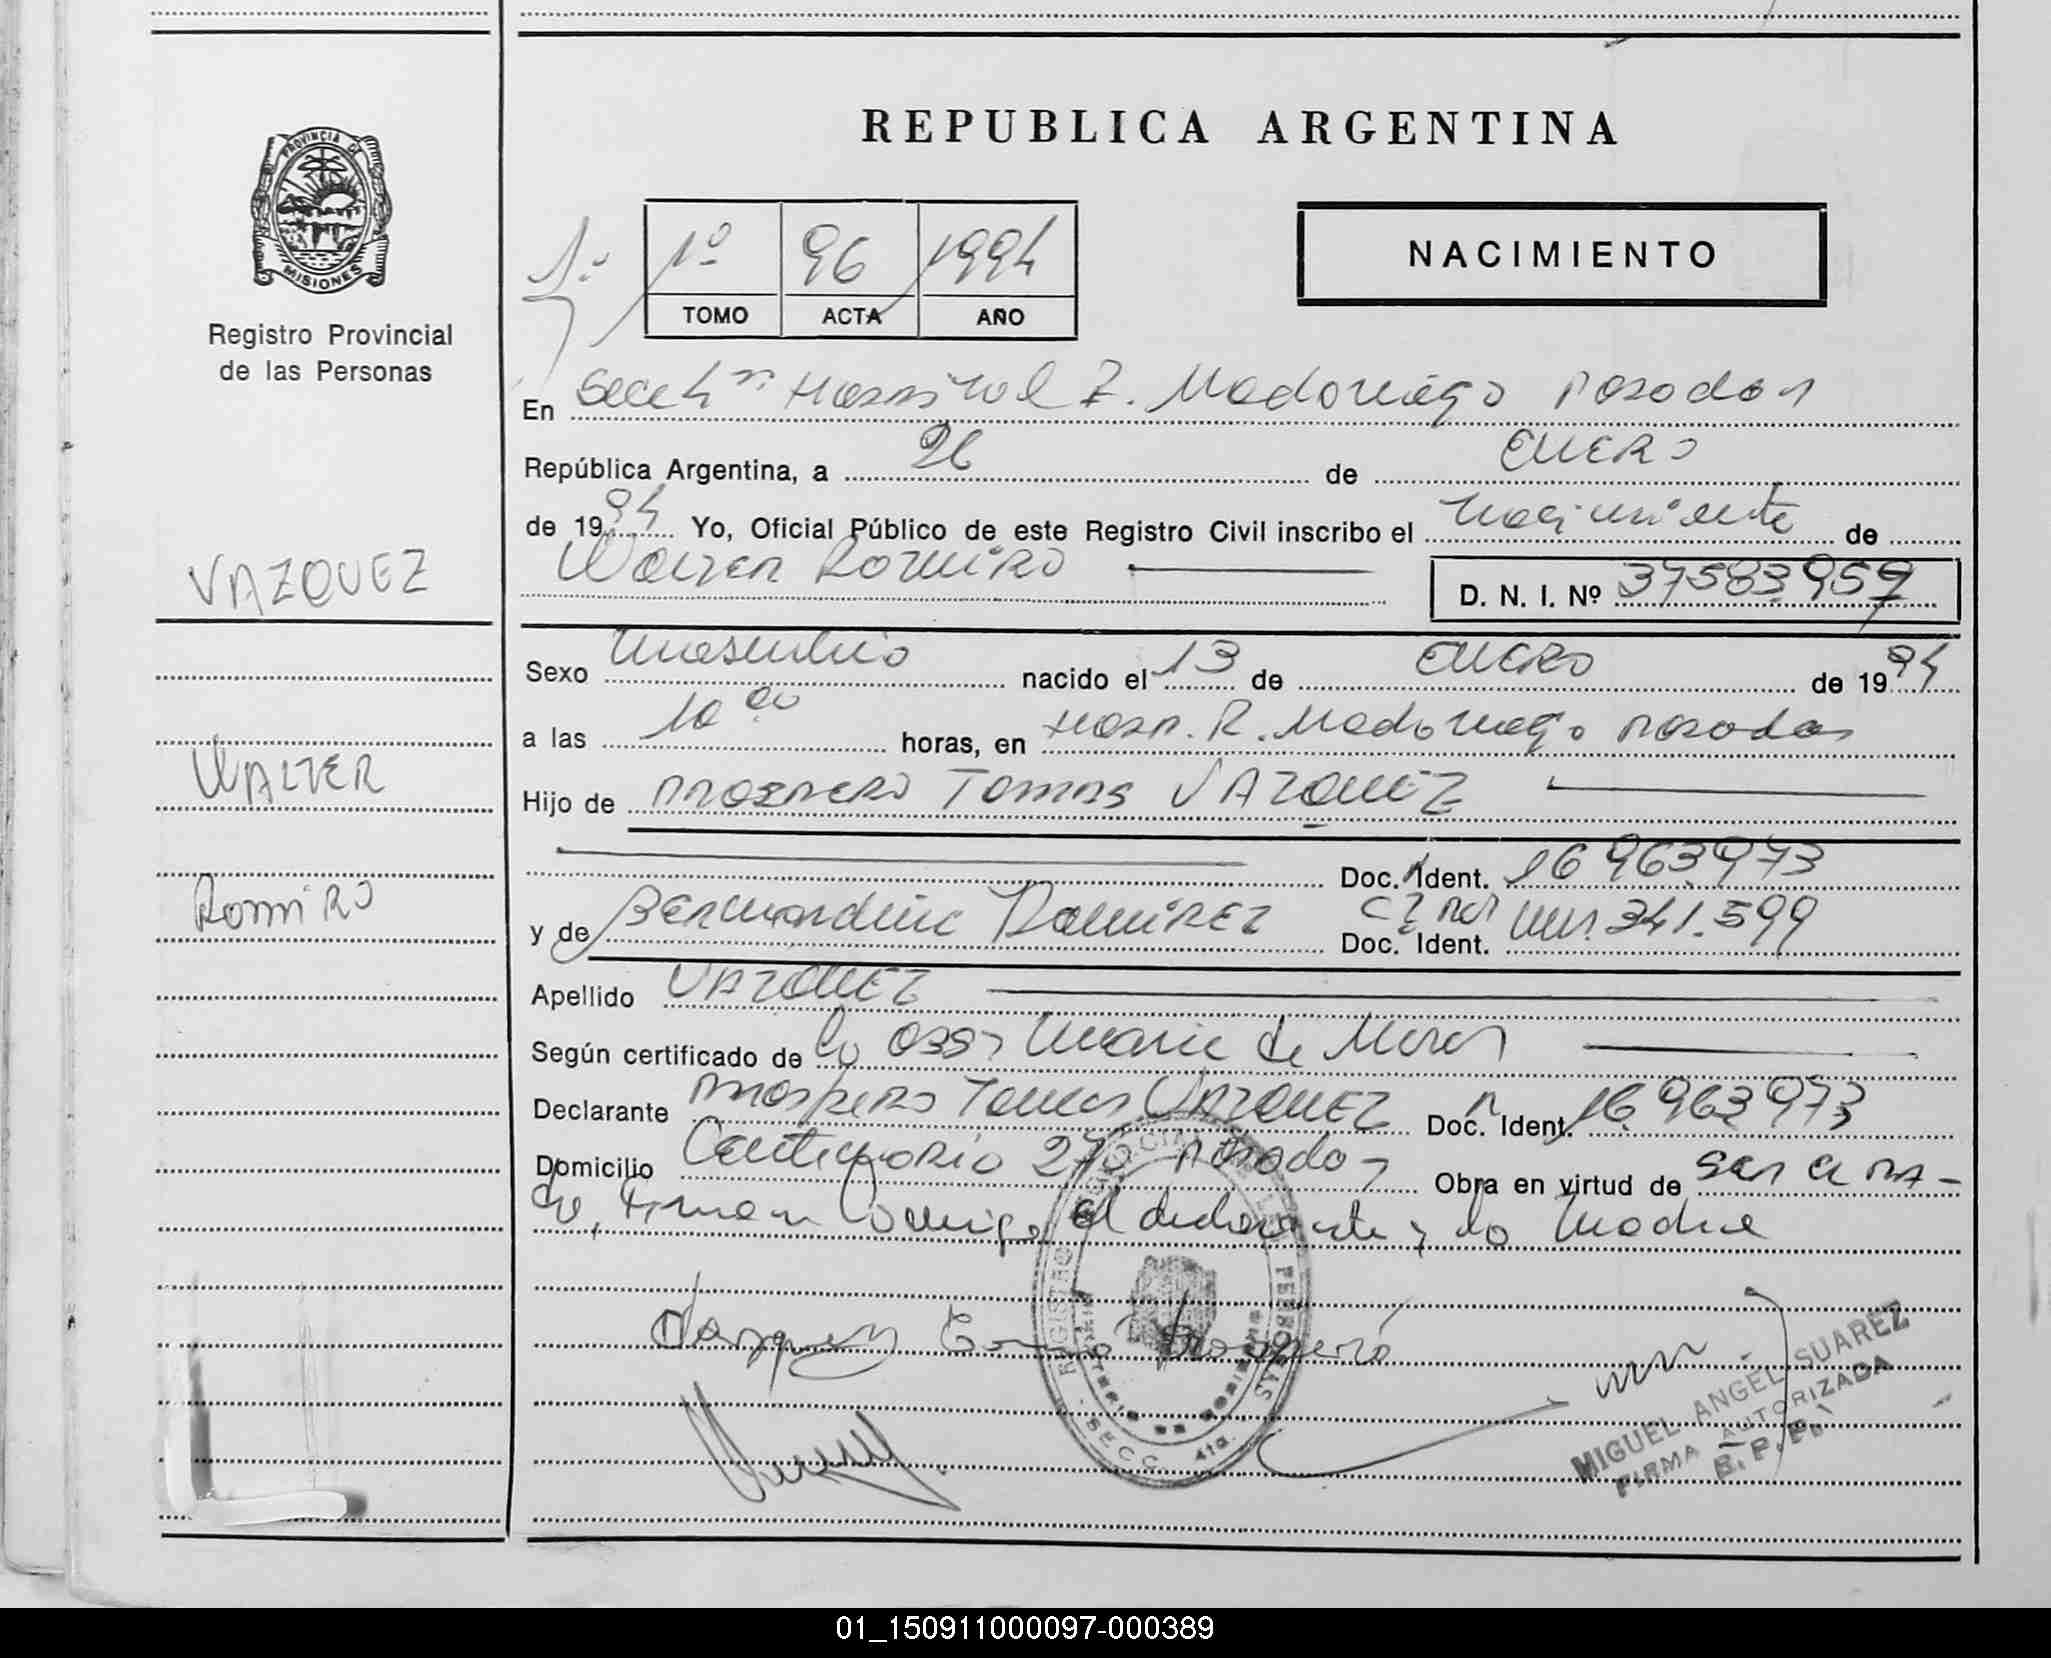 REPUBLICA ARGENTINA
PROVINCIA DE
MISIONES
Registro Provincial
de las Personas
1º
1º 96 1994
TOMO ACTA AÑO
NACIMIENTO
En Secc 4ta Hospital R. Madariaga Posadas
República Argentina, a 26 de ENERO
de 1994 Yo, Oficial Público de este Registro Civil inscribo el nacimiento de
Walter Ramiro
D. N. I. Nº 37583957
VAZQUEZ
WALTER
RAMIRO
Sexo masculino nacido el 13 de ENERO de 1994
a las 10 00 horas, en Hosp. R. Madariaga Posadas
Hijo de PROSPERO TOMAS VAZQUEZ
Doc. Ident. 16 963.973
y de Bernardina RAMIREZ Doc. Ident. 341.599
Apellido VAZQUEZ
Según certificado de la Obst Maria de
Declarante PROSPERO Tomas VAZQUEZ Doc. Ident. 16.963.973
Domicilio 270 Posadas Obra en virtud de SER el PA-
dre, Firman conmigo, el declarante y la Madre
Vazquez Tomas Prospero
REGISTRO PERSONAS
SECC. 4ta.
MIGUEL ANGEL SUAREZ
FIRMA AUTORIZADA
R. P. P.
01_150911000097-000389